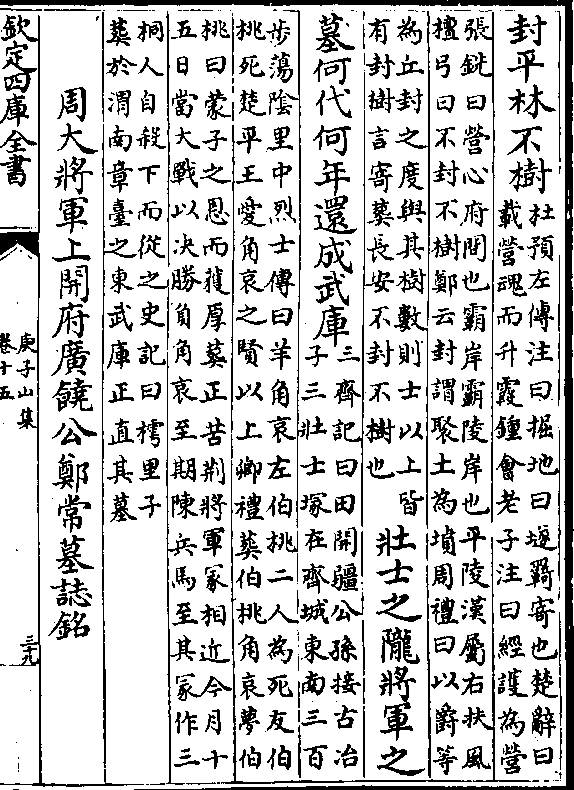 封平林不樹
杜預左傳注曰掘地曰羇寄也楚辭曰
載營魂而升霞鍾會老子注曰經護為營
張銑曰營心府間也霸岸霸陵岸也平陵漢屬右扶風
檀弓曰不封不樹鄭云封謂聚土為墳周禮曰以爵等
為丘封之度與其樹數則士以上皆
有封樹言寄葬長安不封不樹也
壯士之隴將軍之
墓何代何年還成武庫
三齊記曰田開疆公孫接古冶
子三壯士塚在齊城東南三百
步蕩陰里中烈士傳曰羊角哀左伯桃二人為死友伯
桃死楚平王愛角哀之賢以上卿禮葬伯桃角哀夢伯
桃曰蒙子之恩而獲厚葬正苦荆將軍冢相近今月十
五日當大戰以決勝負角哀至期陳兵馬至其冢作三
桐人自殺下而從之史記曰樗里子
葬於渭南章臺之東武庫正直其墓
周大將軍上開府廣饒公鄭常墓誌銘
欽定四庫全書
庾子山集
卷十五
三十九